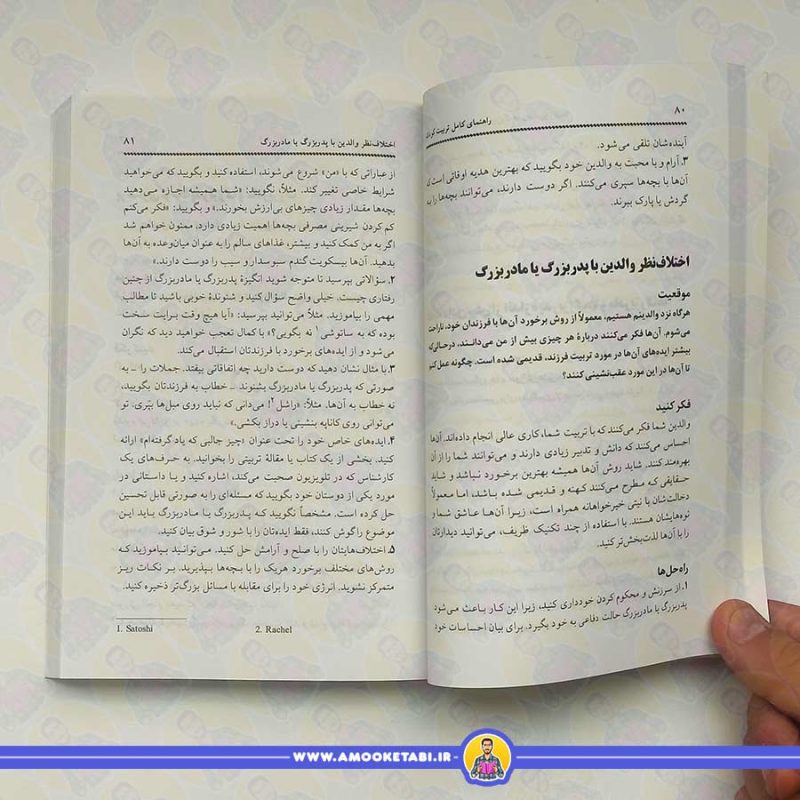 ۸۰
راهنمای کامل تربیت کودک
آینده‌شان تلقی می‌شود.
۳. آرام و با محبت به والدین خود بگویید که بهترین هدیه اوقاتی است که
آن‌ها با بچه‌ها سپری می‌کنند. اگر دوست دارند، می‌توانند بچه‌ها را به
گردش یا پارک ببرند.
اختلاف‌نظر والدین با پدربزرگ یا مادربزرگ
موقعیت
هرگاه نزد والدینم هستیم، معمولاً از روش برخورد آن‌ها با فرزندان خود، ناراحت
می‌شوم. آن‌ها فکر می‌کنند دربارهٔ هر چیزی بیش از من می‌دانند، درحالی‌که
بیشتر ایده‌های آن‌ها در مورد تربیت فرزند، قدیمی شده است. چگونه عمل کنم
تا آن‌ها در این مورد عقب‌نشینی کنند؟
فکر کنید
والدین شما فکر می‌کنند که با تربیت شما، کاری عالی انجام داده‌اند. آن‌ها
احساس می‌کنند که دانش و تدبیر زیادی دارند و می‌توانند شما را از آن
بهره‌مند کنند. شاید روش آن‌ها همیشه بهترین برخورد نباشد و شاید
حقایقی که مطرح می‌کنند کهنه و قدیمی شده باشد، اما معمولاً
دخالت‌شان با نیتی خیرخواهانه همراه است، زیرا آن‌ها عاشق شما و
نوه‌هایشان هستند. با استفاده از چند تکنیک ظریف، می‌توانید دیدارتان
را با آن‌ها لذت‌بخش‌تر کنید.
راه‌حل‌ها
۱. از سرزنش و محکوم کردن خودداری کنید، زیرا این کار باعث می‌شود
پدربزرگ یا مادربزرگ حالت دفاعی به خود بگیرد. برای بیان احساسات خود
اختلاف‌نظر والدین با پدربزرگ یا مادربزرگ
۸۱
از عباراتی که با «من» شروع می‌شوند، استفاده کنید و بگویید که می‌خواهید
شرایط خاصی تغییر کند. مثلاً، نگویید: «شما همیشه اجازه می‌دهید
بچه‌ها مقدار زیادی چیزهای بی‌ارزش بخورند.» و بگویید: «فکر می‌کنم
کم کردن شیرینی مصرفی بچه‌ها اهمیت زیادی دارد. ممنون خواهم شد
اگر به من کمک کنید و بیشتر، غذاهای سالم را به عنوان میان‌وعده به آن‌ها
بدهید. آن‌ها بیسکویت گندم سبوسدار و سیب را دوست دارند.»
۲. سؤالاتی بپرسید تا متوجه شوید انگیزهٔ پدربزرگ یا مادربزرگ از چنین
رفتاری چیست. خیلی واضح سؤال کنید و شنوندهٔ خوبی باشید تا مطالب
مهمی را بیاموزید. مثلاً، می‌توانید بپرسید: «آیا هیچ وقت برایت سخت
بوده است که به ساتوشی۱ نه بگویی؟» با کمال تعجب خواهید دید که نگران
می‌شود و از ایده‌های برخورد با فرزندتان استقبال می‌کند.
۳. با مثال نشان دهید که دوست دارید چه اتفاقاتی بیفتد. جملات را ــ به
صورتی که پدربزرگ یا مادربزرگ بشنوند ــ خطاب به فرزندتان بگویید،
نه خطاب به آن‌ها. مثلاً: «راشل۲! می‌دانی که نباید روی مبل‌ها بپّری. تو
می‌توانی روی کاناپه بنشینی یا دراز بکشی.»
۴. ایده‌های خاص خود را تحت عنوان «چیز جالبی که یاد گرفته‌ام» ارائه
کنید. بخشی از یک کتاب یا مقالهٔ تربیتی را بخوانید. به حرف‌های یک
کارشناس که در تلویزیون صحبت می‌کند، اشاره کنید و یا داستانی در
مورد یکی از دوستان خود بگویید که مسئله‌ای را به صورتی قابل تحسین
حل کرده است. مشخصاً نگویید که پدربزرگ یا مادربزرگ باید این
موضوع را گوش کنند، فقط ایده‌تان را با شور و شوق بیان کنید.
۵. اختلاف‌هایتان را با صلح و آرامش حل کنید. می‌توانید بیاموزید که
روش‌های مختلف برخورد هریک را با بچه‌ها بپذیرید. بر نکات ریز
متمرکز نشوید. انرژی خود را برای مقابله با مسائل بزرگ‌تر ذخیره کنید.
1. Satoshi 2. Rachel
WWW.AMOOKETABI.IR